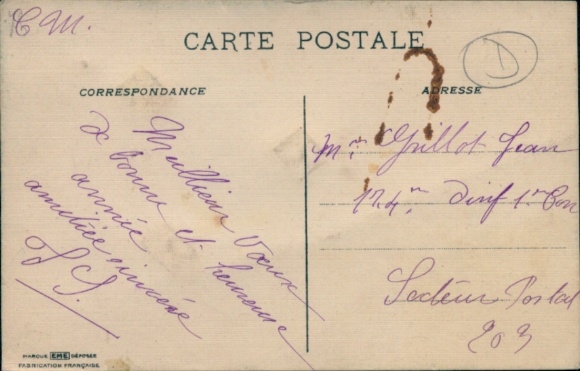 F. M.
CARTE POSTALE
D
CORRESPONDANCE
ADRESSE
Meilleurs Vœux
de bonne et heureuse
année
amitiée sincère
J S.
Mr Grillot Jean
174me Dinf 1re Con
Secteur Postal
203
MARQUE EME DÉPOSÉE
FABRICATION FRANÇAISE